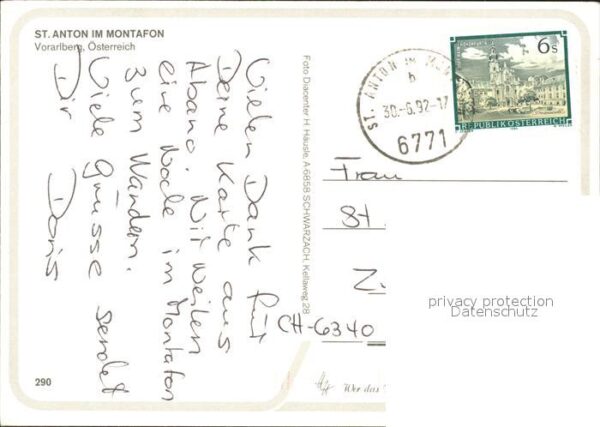 ST. ANTON IM MONTAFON
Vorarlberg, Österreich
Vielen Dank für
Deine Karte aus
Abano. Wir weilen
eine Woche im Montafon
zum Wandern.
Viele Grüsse sendet
Dir Doris
290
Foto Diacenter H. Häusle, A 6858 SCHWARZACH, Kellaweg 28
ST. ANTON IM MON
b
30.-6.92-17
6771
6 S
REPUBLIK ÖSTERREICH
Frau
St
CH-6340
Wer das
privacy protection
Datenschutz